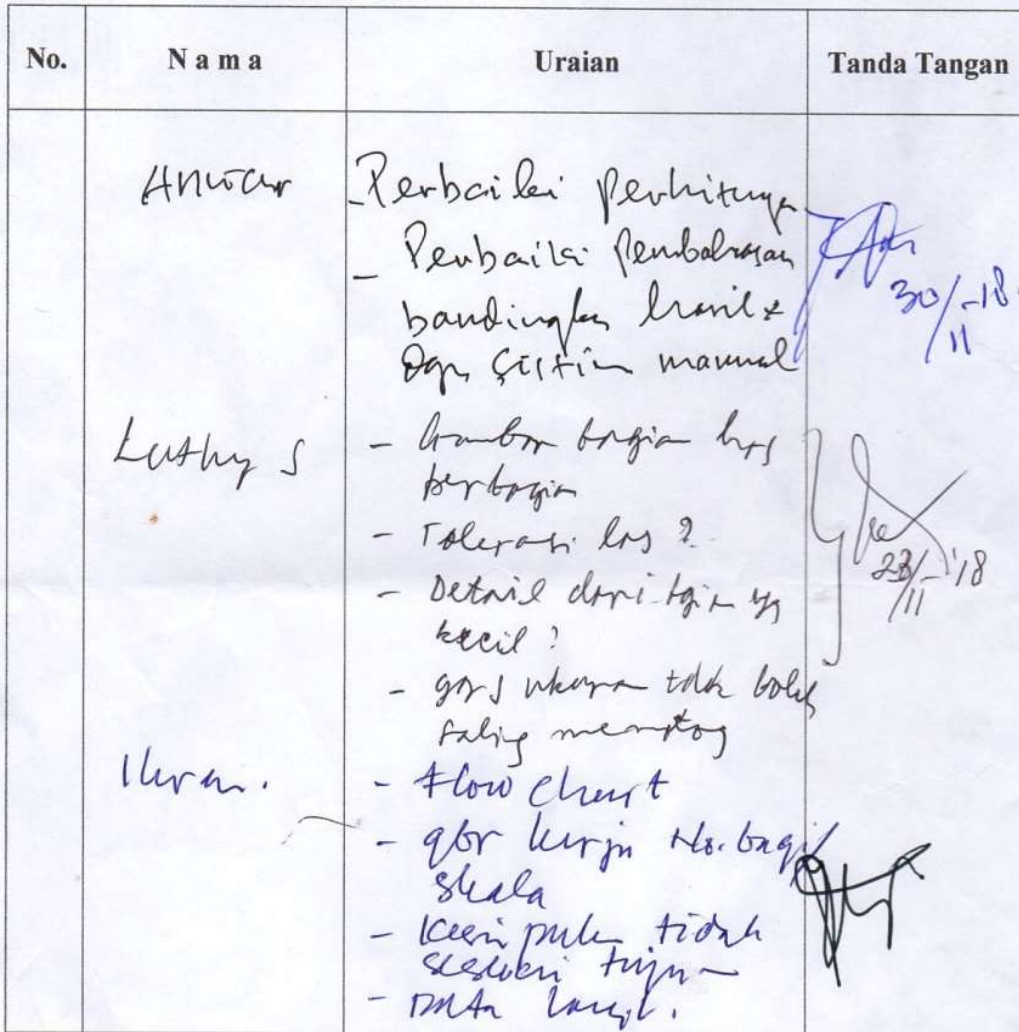 No. N a m a Uraian Tanda Tangan
Anwar - Perbaiki perhitungan
- Perbaiki Pembahasan
bandingkan hasil
dgn sistim manual
30/11-18
Luthy S - Gambar bagian
perbagian
- Toleransi las ?
- Detail dari bgian yg
kecil ?
23/11-'18
- grs ukuran tdk boleh
saling memotog
- flow chart
- gbr kerja No. bagi/
skala
- kesimpulan tidak
sesuai tujuan
- Data